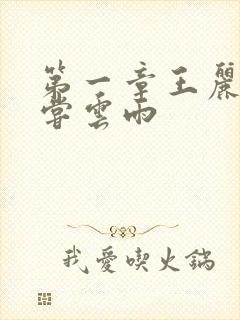 第一章王麗
嘗雲雨
我愛喫火鍋